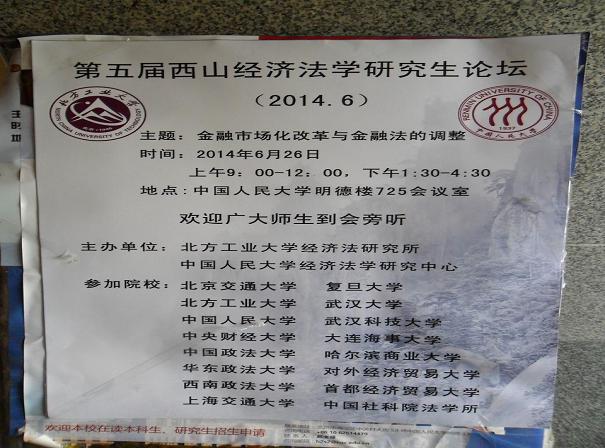 第五届西山经济法学研究生论坛
（2014.6）
北方工业大学
NORTH CHINA UNIVERSITY OF TECHNOLOGY
RENMIN UNIVERSITY OF CHINA
1937
中国人民大学
主题：金融市场化改革与金融法的调整
时间：2014年6月26日
上午9：00-12：00，下午1:30-4:30
地点:中国人民大学明德楼725会议室
欢迎广大师生到会旁听
主办单位：北方工业大学经济法研究所
中国人民大学经济法学研究中心
参加院校：北京交通大学 复旦大学
北方工业大学 武汉大学
中国人民大学 武汉科技大学
中央财经大学 大连海事大学
中国政法大学 哈尔滨商业大学
华东政法大学 对外经济贸易大学
西南政法大学 首都经济贸易大学
上海交通大学 中国社科院法学所
欢迎本校在读本科生、研究生招生申请